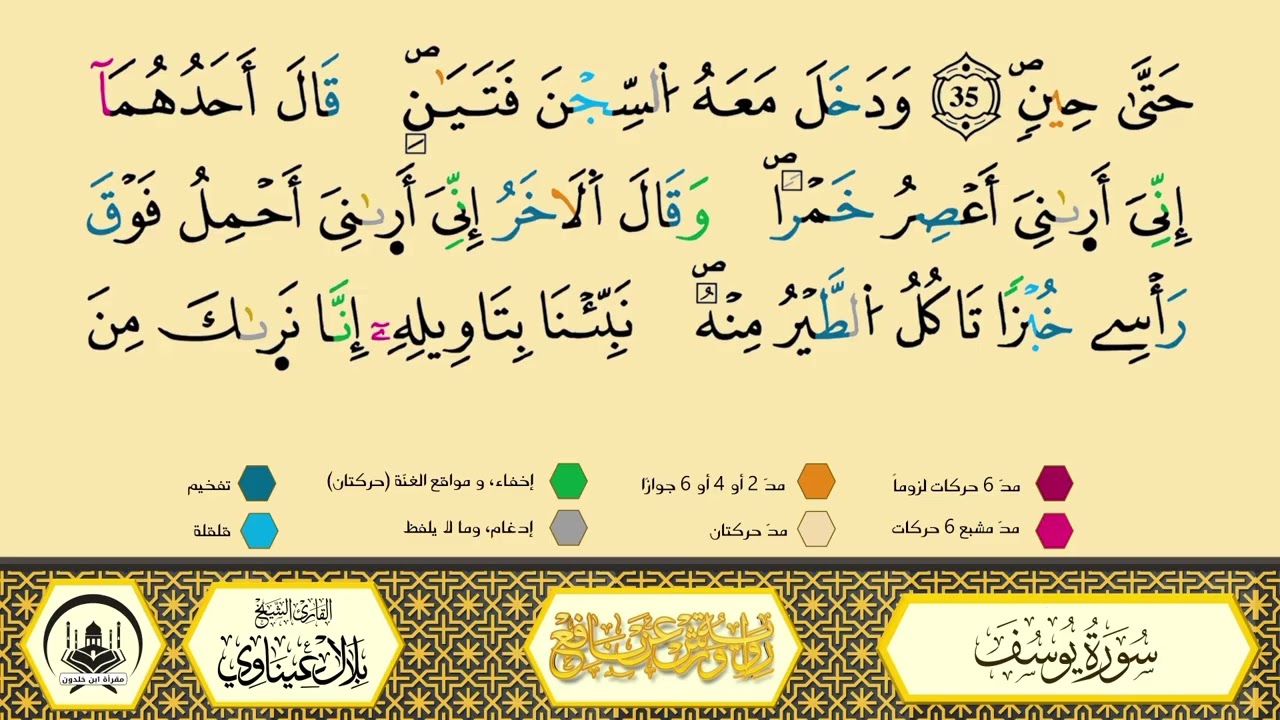 حَتَّىٰ حِينٖۖ 35 وَدَخَلَ مَعَهُ اُ۬لسِّجْنَ فَتَيَٰنِۖ قَالَ أَحَدُهُمَآ
إِنِّيَ أَر۪ىٰنِيَ أَعْصِرُ خَمْراٗۖ وَقَالَ اَ۬لَاخَرُ إِنِّيَ أَر۪ىٰنِيَ أَحْمِلُ فَوْقَ
رَأْسِے خُبْزاٗ تَاكُلُ اُ۬لطَّيْرُ مِنْهُۖ نَبِّئْنَا بِتَاوِيلِهِۦٓ إِنَّا نَر۪ىٰكَ مِنَ
مدّ 6 حركات لزوماً
مدّ 2 أو 4 أو 6 جوازًا
إخفاء، و مواقع الغنّة (حركتان)
تفخيم
مدّ مشبع 6 حركات
مدّ حركتان
إدغام، وما لا يلفظ
قلقلة
سُورَةُ يُوسُفَ
رواية ورش عن نافع
القارئ الشيخ
بلال عيناوي
مقرأة ابن خلدون